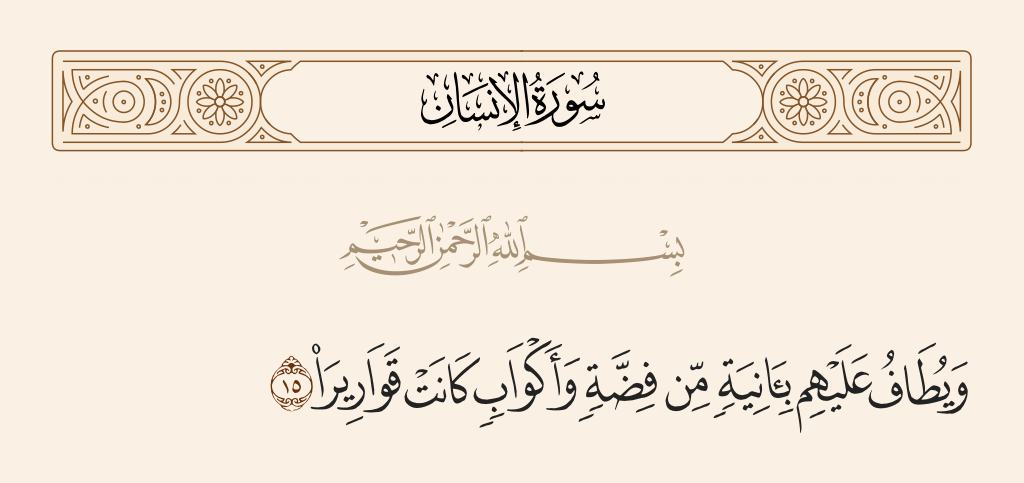 سُورَةُ الإِنسَانِ
بِسْمِ ٱللَّهِ ٱلرَّحْمَٰنِ ٱلرَّحِيمِ
وَيُطَافُ عَلَيْهِم بِـَٔانِيَةٍ مِّن فِضَّةٍ وَأَكْوَابٍ كَانَتْ قَوَارِيرَا۠ ١٥